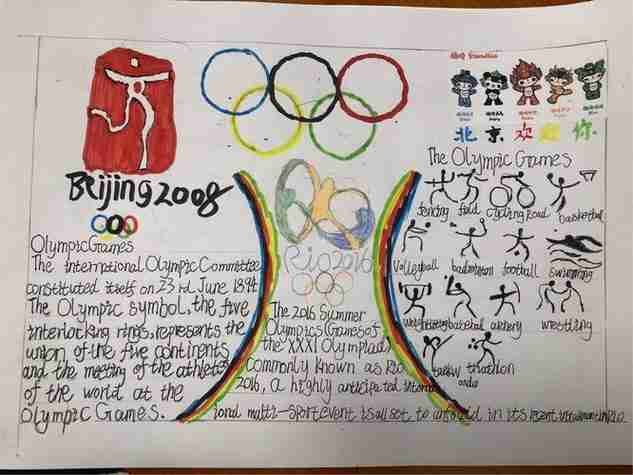 Beijing 2008
Olympic Games
The International Olympic Committee
constituted itself on 23 rd June 1894
The Olympic symbol, the five
interlocking rings, represents the
union of the five continents
and the meeting of the athletes
of the world at the
Olympic Games.
Rio 2016
The 2016 Summer
Olympics (Games of
the XXXI Olympiad)
commonly known as Rio
2016, a highly anticipated
ional multi-sport event is all set to unfold in its
Friendlies
北京欢迎你
The Olympic Games
fencing field cycling road basketball
Volleyball badminton football swimming
archery wrestling
triathlon